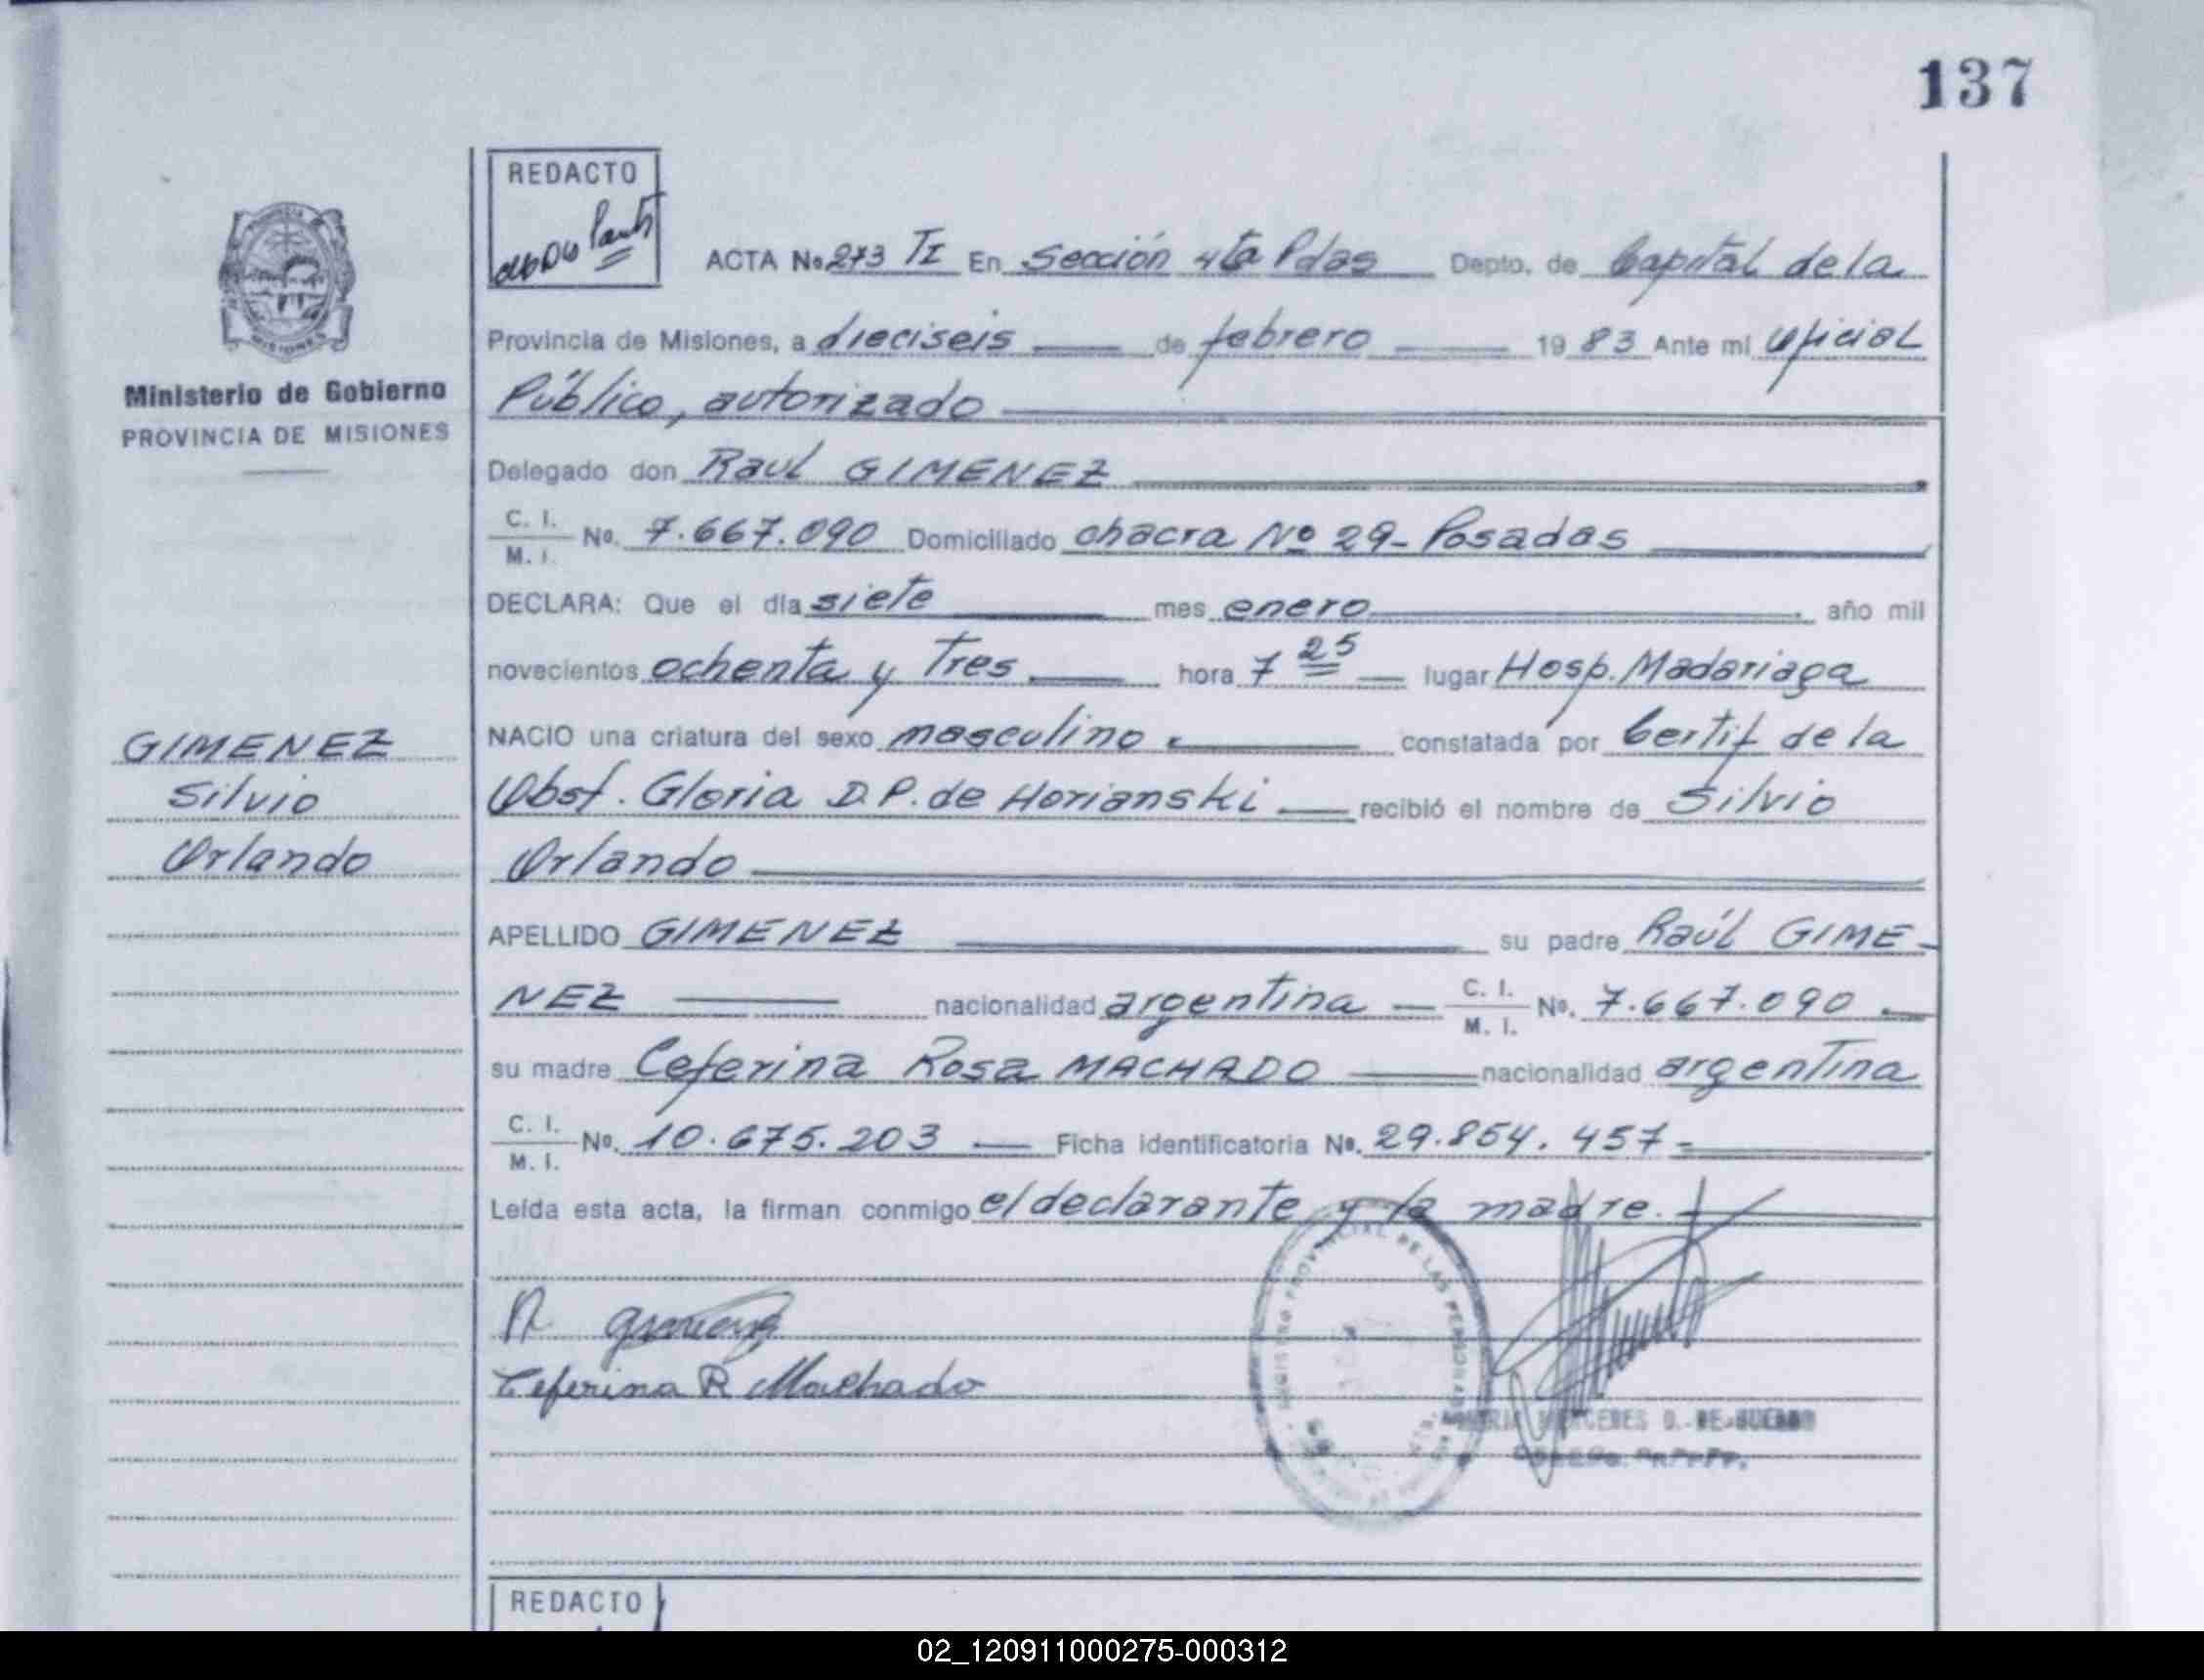 137
REDACTO
ACTA No 273 TI En Sección 4ta Pdas Depto. de Capital de la
Provincia de Misiones, a dieciseis de febrero 1983 Ante mi Oficial
Público, autorizado
Ministerio de Gobierno
PROVINCIA DE MISIONES
Delegado don Raul GIMENEZ
C. I. / M. I. No. 7.667.090 Domiciliado chacra Nº 29- Posadas
DECLARA: Que el día siete mes enero año mil
novecientos ochenta y Tres hora 7 25 lugar Hosp. Madariaga
GIMENEZ
Silvio
Orlando
NACIO una criatura del sexo masculino constatada por Certif de la
Obst. Gloria D.P. de Horianski recibió el nombre de Silvio
Orlando
APELLIDO GIMENEZ su padre Raúl GIME-
NEZ nacionalidad argentina C. I. / M. I. No. 7.667.090
su madre Ceferina Rosa MACHADO nacionalidad argentina
C. I. / M. I. No. 10.675.203 Ficha identificatoria No. 29.854.457-
Leída esta acta, la firman conmigo el declarante y la madre.
R. Gimenez
Ceferina R Machado
REGISTRO PROVINCIAL DE LAS PERSONAS
MERCEDES D. DE
REDACTO
02_120911000275-000312